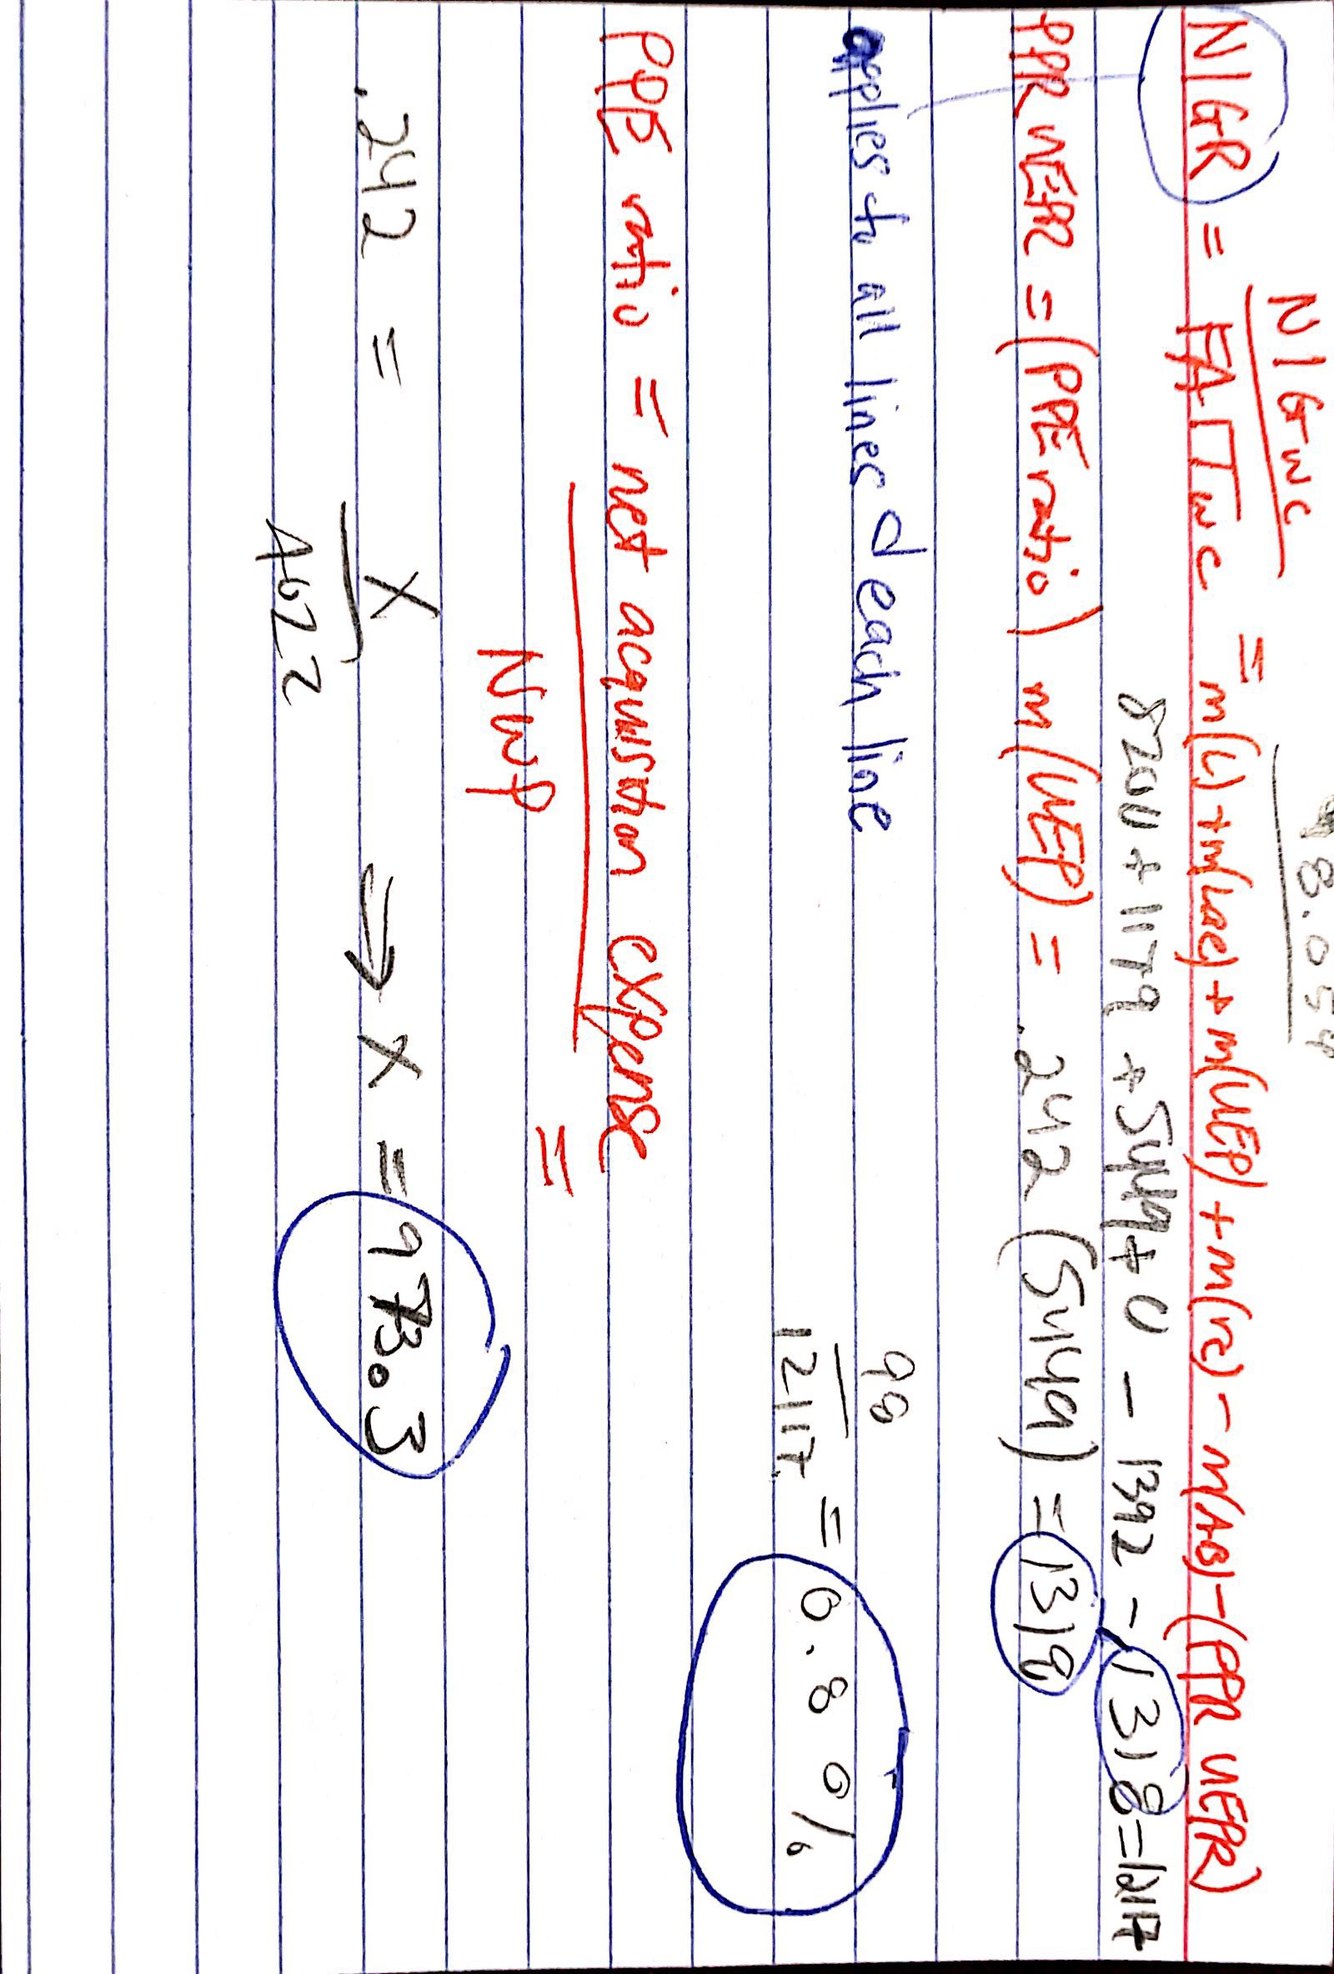 98.054
NIGWC
NIGR = FAITWC = m(L) + m(Lae) + m(UEP) + m(rc) - m(AB) - (PPR UEPR)
8200 + 1179 + 5449 + 0 - 1392 - 1318 = 12117
PPR UEPR = (PPE ratio) m(UEP) = .242 (5449) = 1318
applies to all lines & each line
98
12117 = 0.80%
PPE ratio = net acquisition expense
NWP =
.242 = X ⇒ X = 973.3
4022